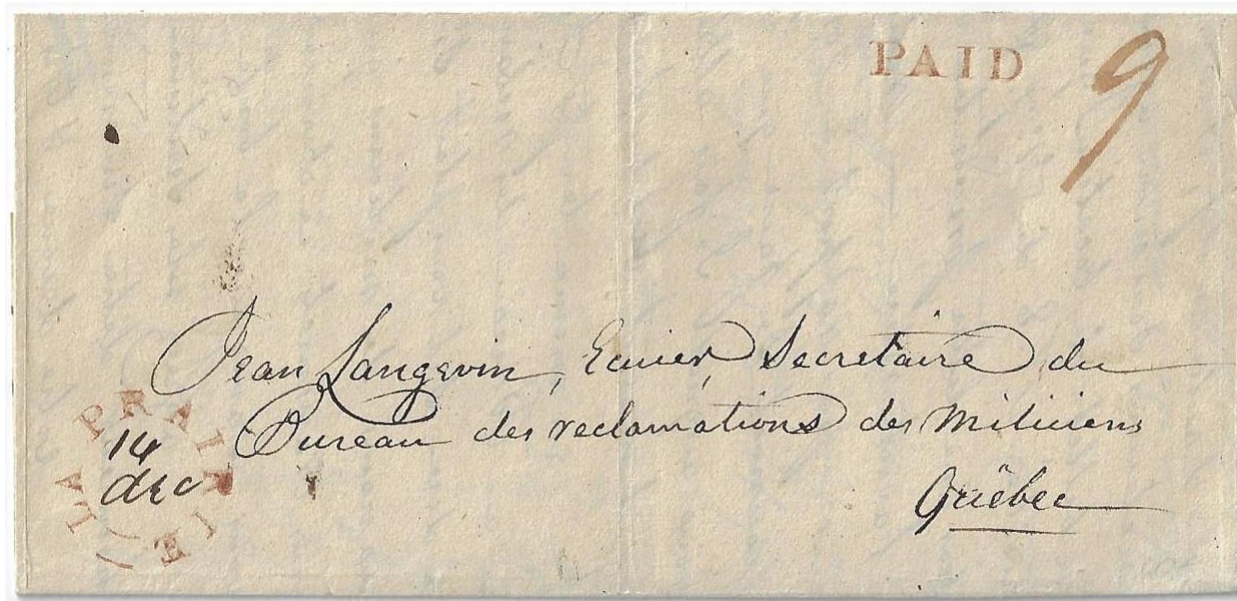 PAID 9
Jean Langevin, Ecuier, Secretaire du
Bureau des reclamations des Miliciens
Québec
LA PRAIRIE
14
dec